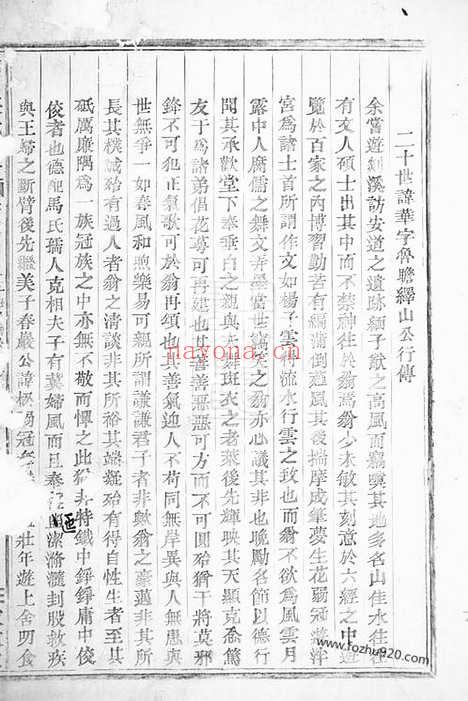 二十世諱華字魯瞻繹山公行傳
余嘗遊剡溪訪安道之遺跡緬子猷之高風而竊嘆其地多名山佳水往往
有文人碩士出其中而不禁神往於翁翁少朱敏其刻意於六經之中遊
覽於百家之內博習勤苦有縞蒲倒通風其後揣摩成筆夢生花弱冠遊泮
宮為諸士首所謂作文如楊子雲得流水行雲之致也而翁不欲為風雲月
露中人腐儒之舞文弄墨當世之論翁亦心議其非也晚勵名節以德行
聞其承歡堂下奉垂白之親與夫舞斑衣之老萊後先輝映其天顯克恭篤
友于為諸弟倡花萼可再建也其善善惡惡可方而不可圓殆猶干將莫邪
鋒不可犯正氣歌可於翁再頌也其善氣迎人不苟同無岸異與人無患與
世無爭一如春風和煦樂易可親所謂謙謙君子者非歟翁之豪邁非其所
長其樸誠殆有過人者翁之清談非其所裕其端凝殆有得自性生者至其
砥厲廉隅為一族冠族之中亦無不敬而憚之此猶非特鐵中錚錚庸中佼
佼者也德配馬氏孺人克相夫子有冀婦風而且奉 潔滫瀡封股救疾
與王 之斷臂後先繼美子春嚴公諱 弱冠 壯年遊上舍四食
匾
nayona.cn
www.fozhu920.com